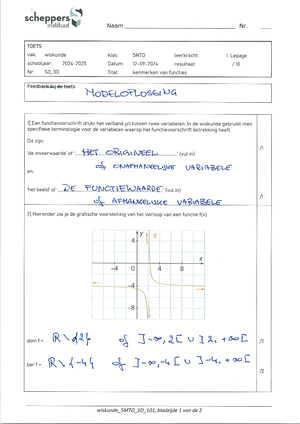 scheppers
instituut
Naam
Nr.
TOETS:
vak: wiskunde klas: 5MTO leerkracht: I. Lepage
schooljaar: 2024-2025 Datum: 12-09-2024 resultaat: / 10
Nr: SO_101 Titel: kenmerken van functies
Feedback bij de toets
MODELOPLOSSING
1) Een functievoorschrift drukt het verband uit tussen twee variabelen. In de wiskunde gebruikt men
specifieke terminologie voor de variabelen waarop het functievoorschrift betrekking heeft.
Dit zijn:
'de invoerwaarde' of ' HET ORIGINEEL ' (vul in)
of ONAFHANKELIJKE VARIABELE
/1
en,
'het beeld' of ' DE FUNCTIEWAARDE ' (vul in)
of AFHANKELIJKE VARIABELE
/1
2) Hieronder zie je de grafische voorstelling van het verloop van een functie f(x).
y
4
x
-4 0 4 8
-4
-8
dom f = ℝ \ {2} of ]-∞, 2[ ∪ ]2, +∞[ /2
ber f = ℝ \ {-4} of ]-∞, -4[ ∪ ]-4, +∞[ /2
wiskunde_5MTO_SO_101, bladzijde 1 van de 2